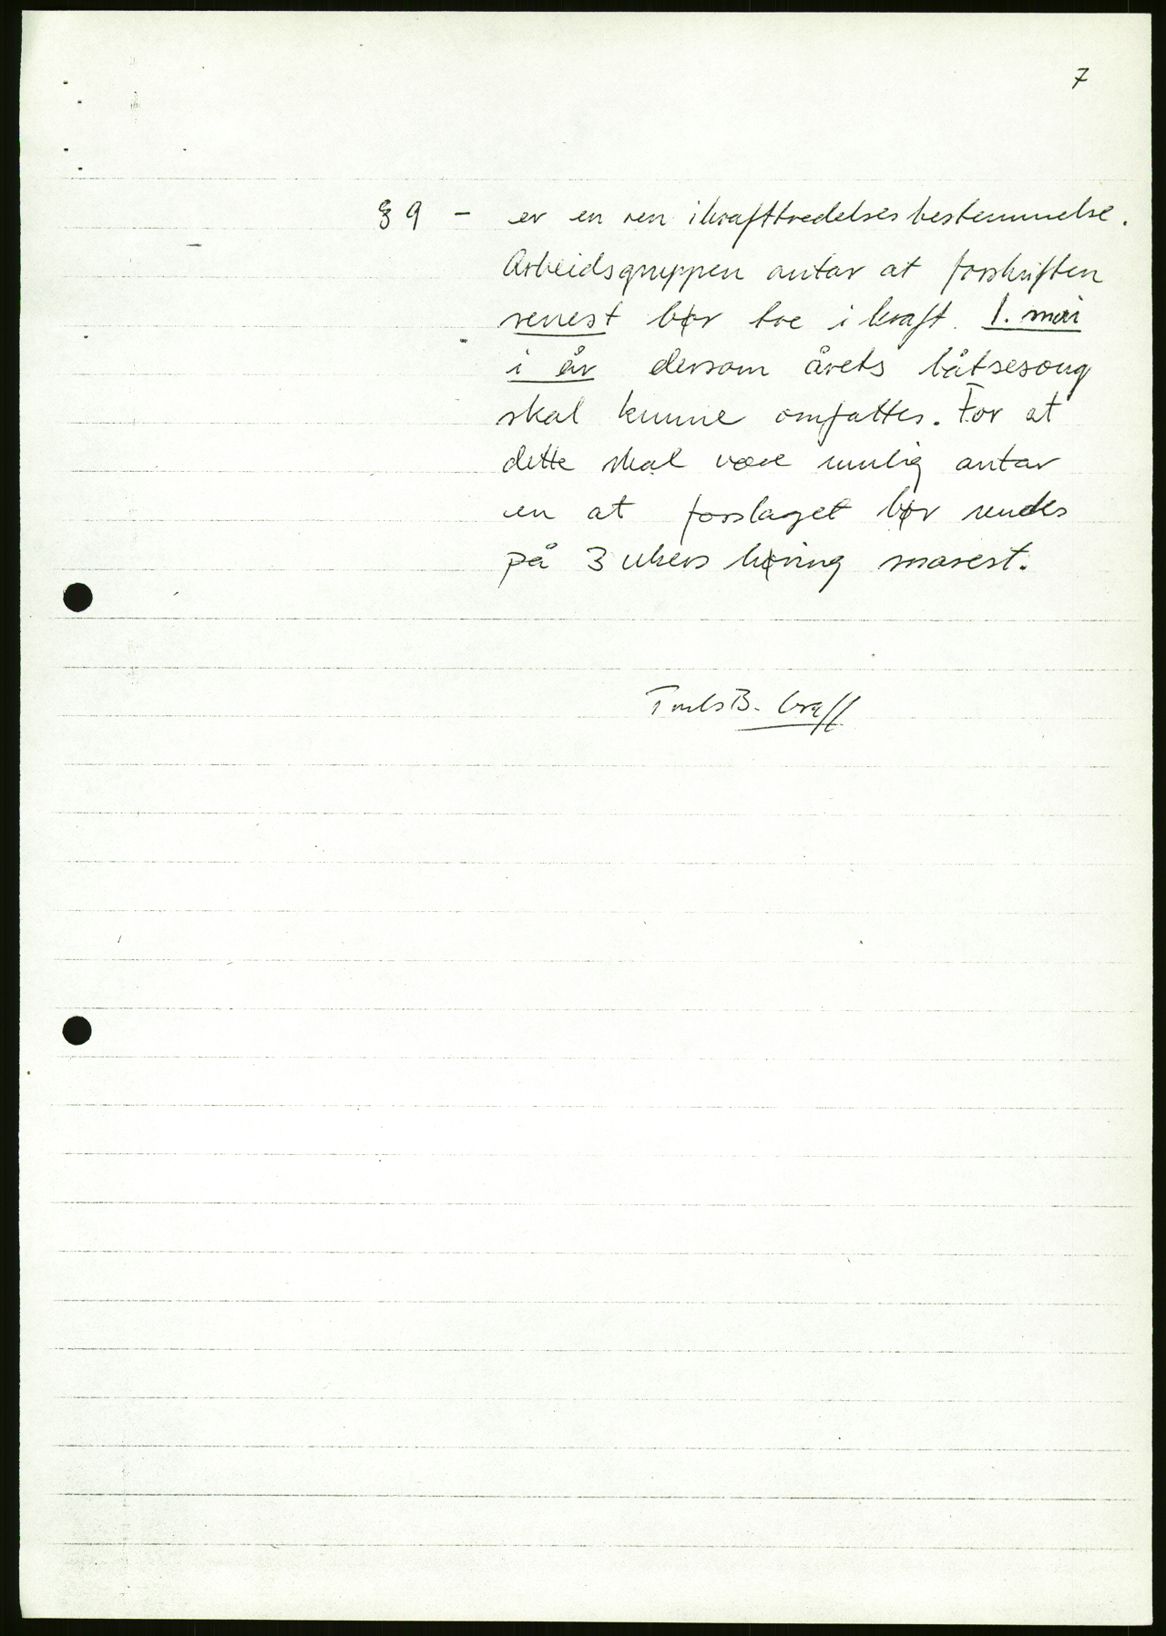 7
§ 9 - er en ren ikrafttredelsesbestemmelse.
Arbeidsgruppen antar at forskriften
senest bør tre i kraft 1. mai
i år dersom årets båtsesong
skal kunne omfattes. For at
dette skal være mulig antar
en at forslaget bør sendes
på 3 ukers høring snarest.
B. Graff